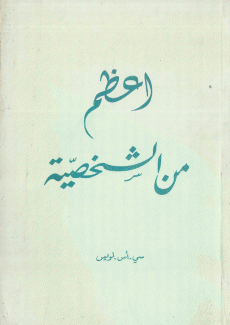 اعظم
من الشخصيّة
سي.اس.لويس